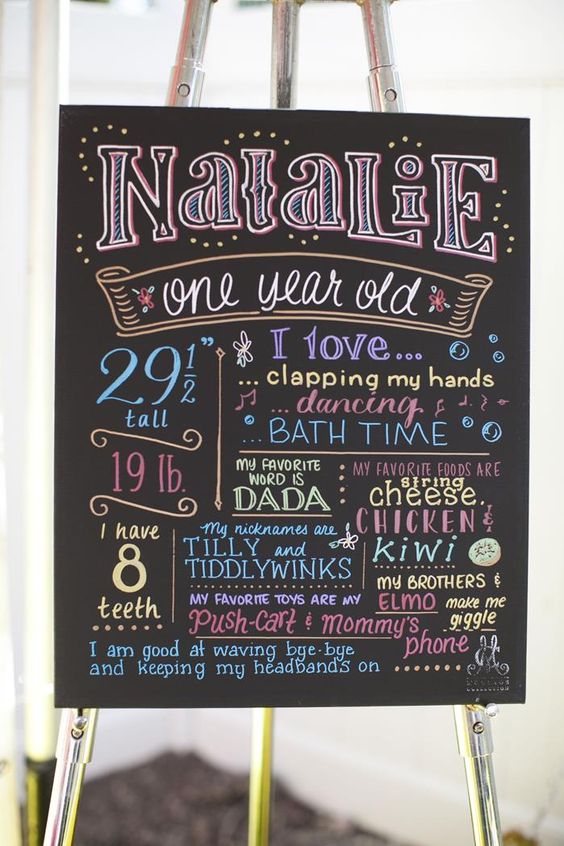 Natalie
one year old
29 1/2"
tall
19 lb.
I have
8
teeth
I love...
...clapping my hands
...dancing
...BATH TIME
MY FAVORITE
WORD IS
DADA
MY FAVORITE FOODS ARE
string
cheese,
CHICKEN &
KIWI
My nicknames are
TILLY and
TIDDLYWINKS
MY BROTHERS &
ELMO make me
giggle
MY FAVORITE TOYS ARE MY
Push-Cart & Mommy's
phone
I am good at waving bye-bye
and keeping my headbands on
COLLECTION